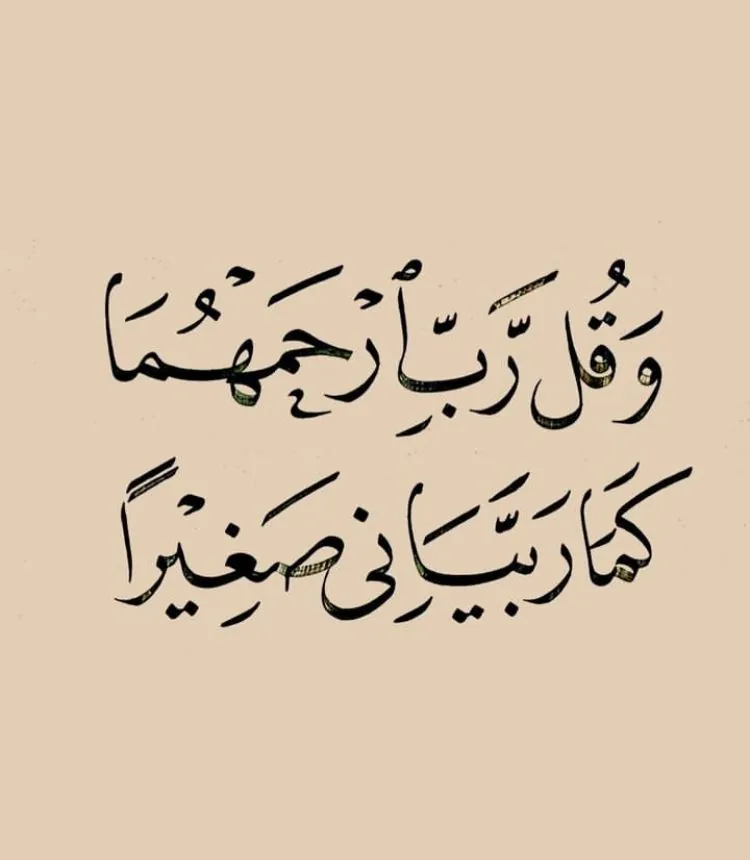 وَقُل رَّبِّ ٱرْحَمْهُمَا
كَمَا رَبَّيَانِى صَغِيْرًا